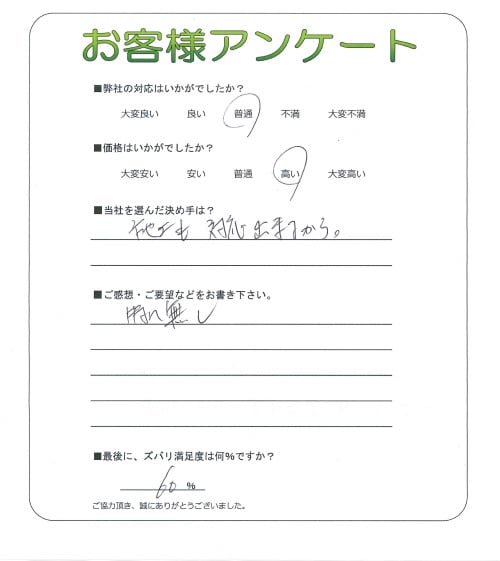 お客様アンケート
■弊社の対応はいかがでしたか？
大変良い 良い 普通 不満 大変不満
■価格はいかがでしたか？
大変安い 安い 普通 高い 大変高い
■当社を選んだ決め手は？
対応出来るから。
■ご感想・ご要望などをお書き下さい。
無し
■最後に、ズバリ満足度は何％ですか？
60 %
ご協力頂き、誠にありがとうございました。